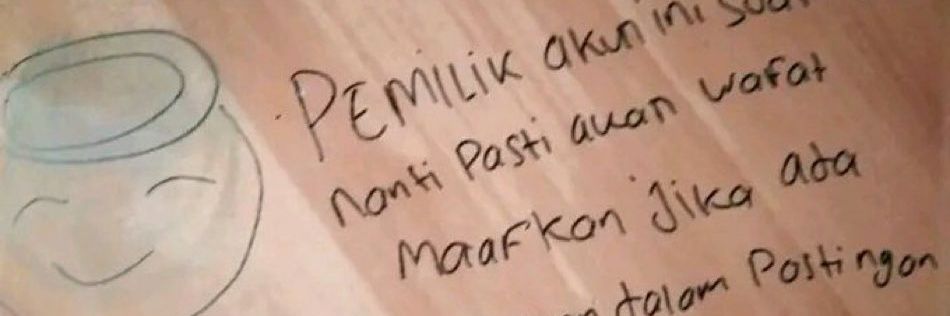 PEMILIK akun ini
nanti Pasti akan wafat
Maafkan jika ada
dalam Postingan